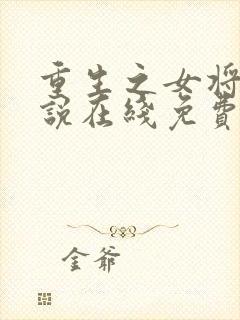 重生之女将
說在綫免費
金爺